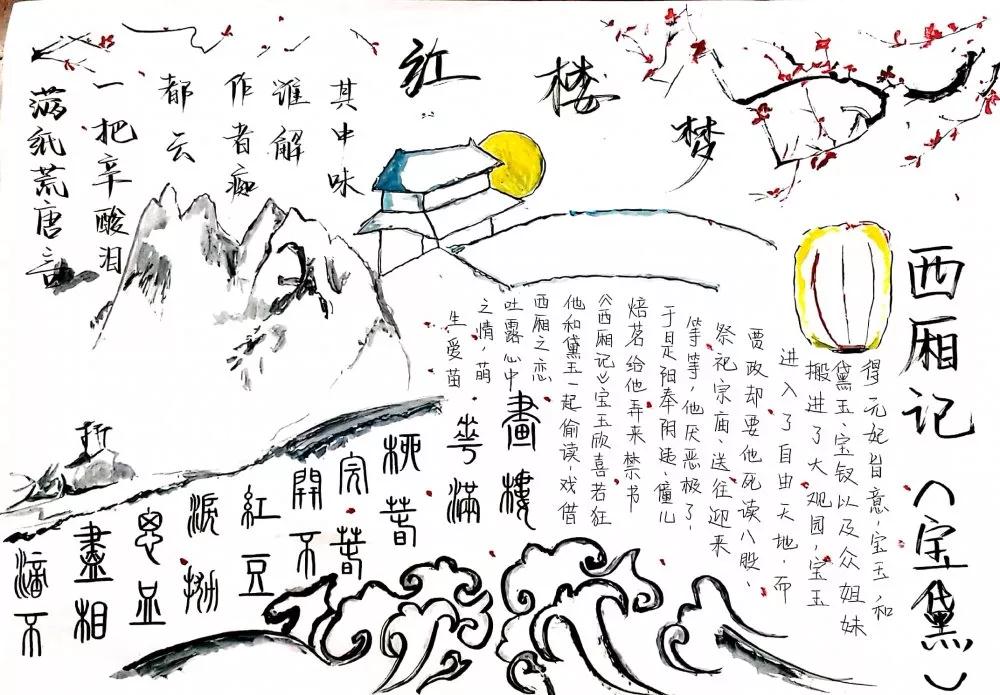 红楼梦
满纸荒唐言
一把辛酸泪
都云
作者痴
谁解
其中味
西厢记(宝黛)
得元妃旨意,宝玉和
黛玉、宝钗以及众姐妹
搬进了大观园,宝玉
进入了自由天地,而
贾政却要他死读八股、
祭祀宗庙、送往迎来
等等,他厌恶极了,
于是阳奉阴违,僮儿
焙茗给他弄来禁书
《西厢记》宝玉欣喜若狂
他和黛玉一起偷读,戏借
西厢之恋
吐露心中
之情,萌
生爱苗
滴不
盡相
思血
淚抛
紅豆
開不
完春
柳春
花滿
畫樓